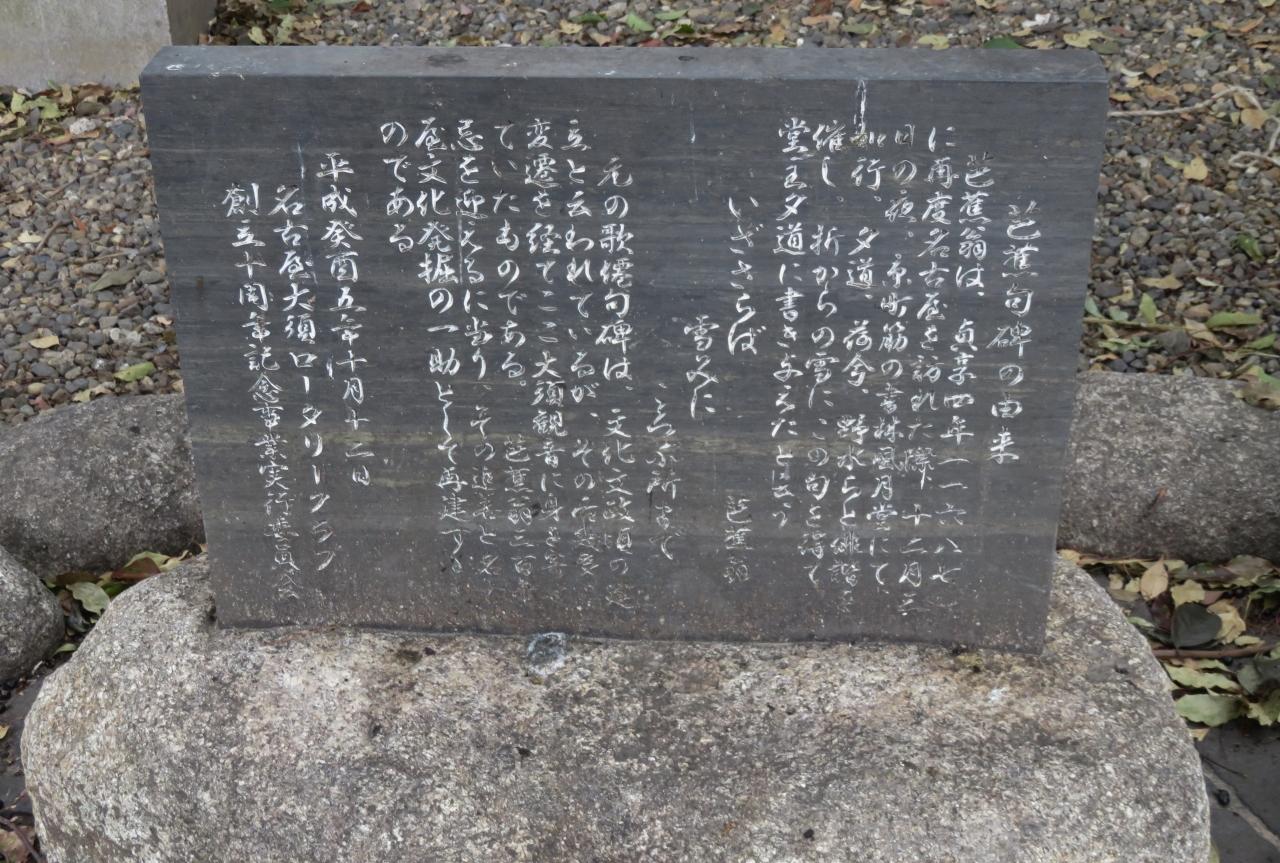 芭蕉句碑の由来
芭蕉翁は、貞享四年一六八七
に再度名古屋を訪れた際、十二月三
日の夜、京町筋の書林風月堂にて、
如行、夕道、荷兮、野水らと俳諧を
催し、折からの雪にこの句を得て
堂主夕道に書き与えたと云う
いざさらば 芭蕉翁
雪みに
ころぶ所まで
元の歌僊句碑は、文化文政頃の建
立と云われているが、その后幾多
変遷を経てここ大須観音に身を寄
ていたものである。芭蕉翁三百年
忌を迎えるに当り、その追善と名古
屋文化発掘の一助として再建する
のである
平成癸酉五年十月十二日
名古屋大須ロータリークラブ
創立十周年記念事業実行委員会